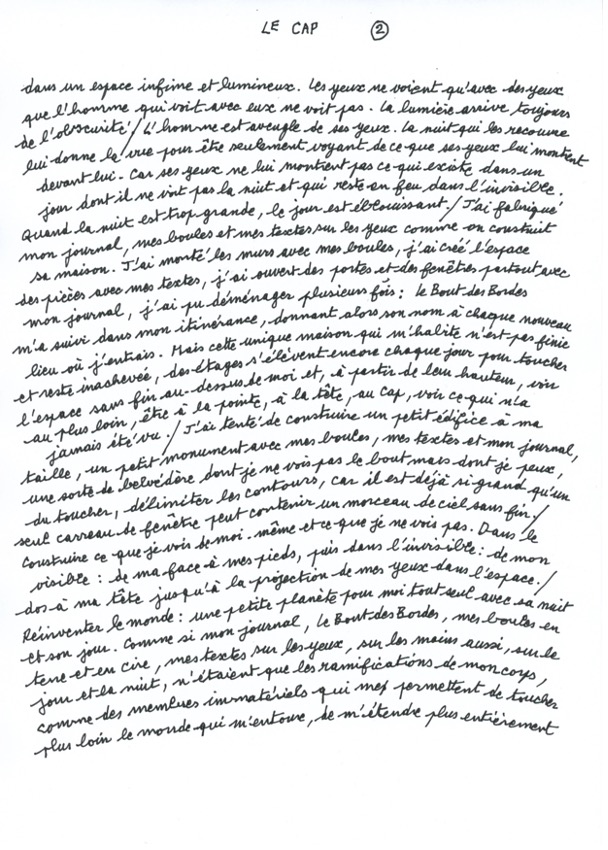 LE CAP 2
dans un espace infime et lumineux. Les yeux ne voient qu'avec des yeux
que l'homme qui voit avec eux ne voit pas. La lumière arrive toujours
de l'obscurité / L'homme est aveugle de ses yeux. La nuit qui les recouvre
lui donne la vue pour être seulement voyant de ce que ses yeux lui montrent
devant lui. Car ses yeux ne lui montrent pas ce qui existe dans un
jour dont il ne vint pas la nuit et qui reste en feu dans l'invisible.
Quand la nuit est trop grande, le jour est éblouissant. / J'ai fabriqué
mon journal, mes boules et mes textes sur les yeux comme on construit
sa maison. J'ai monté les murs avec mes boules, j'ai créé l'espace
des pièces avec mes textes, j'ai ouvert des portes et des fenêtres partout avec
mon journal, j'ai pu déménager plusieurs fois : le Bout des Bordes
m'a suivi dans mon itinérance, donnant alors son nom à chaque nouveau
lieu où j'entrais. Mais cette unique maison qui m'habite n'est pas finie
et reste inachevée, des étages s'élèvent encore chaque jour pour toucher
l'espace sans fin au-dessus de moi et, à partir de leur hauteur, voir
au plus loin, être à la pointe, à la tête, au cap, voir ce qui n'a
jamais été vu. / J'ai tenté de construire un petit édifice à ma
taille, un petit monument avec mes boules, mes textes et mon journal,
une sorte de belvédère dont je ne vois pas le bout mais dont je peux,
du toucher, délimiter les contours, car il est déjà si grand qu'un
seul carreau de fenêtre peut contenir un morceau de ciel sans fin. /
Construire ce que je vois de moi-même et ce que je ne vois pas. Dans le
visible : de ma face à mes pieds, puis dans l'invisible : de mon
dos à ma tête jusqu'à la projection de mes yeux dans l'espace. /
Réinventer le monde : une petite planète pour moi tout seul avec sa nuit
et son jour. Comme si mon journal, le Bout des Bordes, mes boules en
terre et en cire, mes textes sur les yeux, sur les mains aussi, sur le
jour et la nuit, n'étaient que les ramifications de mon corps,
comme des membres immatériels qui me permettent de toucher
plus loin le monde qui m'entoure, de m'étendre plus entièrement